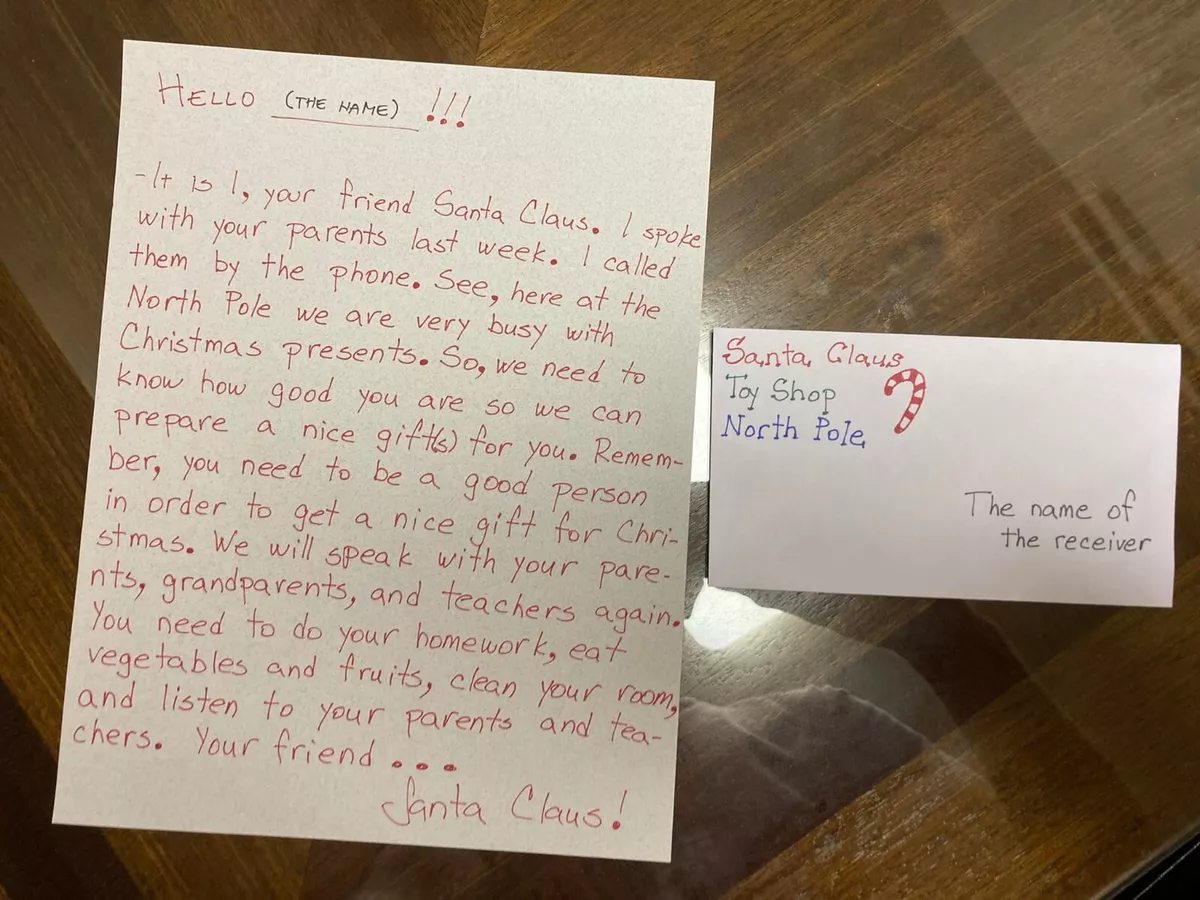 HELLO (THE NAME) !!!
-It is I, your friend Santa Claus. I spoke
with your parents last week. I called
them by the phone. See, here at the
North Pole we are very busy with
Christmas presents. So, we need to
know how good you are so we can
prepare a nice gift(s) for you. Remem-
ber, you need to be a good person
in order to get a nice gift for Chri-
stmas. We will speak with your pare-
nts, grandparents, and teachers again.
You need to do your homework, eat
vegetables and fruits, clean your room,
and listen to your parents and tea-
chers. Your friend ...
Santa Claus!
Santa Claus
Toy Shop
North Pole
The name of
the receiver